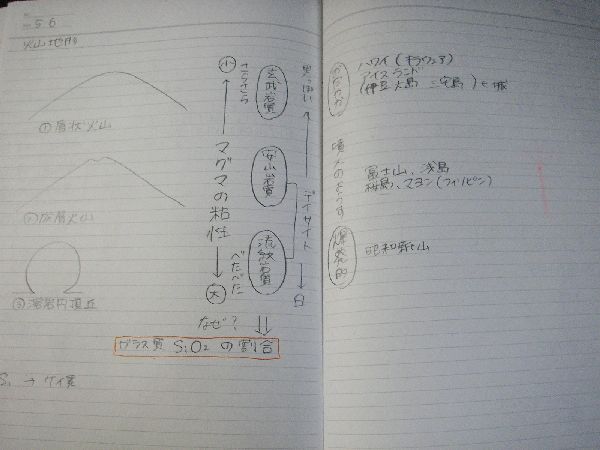 56
火山地形
①盾状火山
②成層火山
③溶岩円頂丘
小
マグマの粘性
大
さらさら
べたべた
玄武岩質
安山岩質
流紋岩質
黒っぽい
デイサイト
白
なぜ?
ガラス質 SiO2 の割合
Si → ケイ素
ハワイ(キラウェア)
アイスランド
(伊豆大島 三宅島)
噴火のようす
富士山、浅
桜島、マヨン(フィリピン)
爆発的
昭和新山